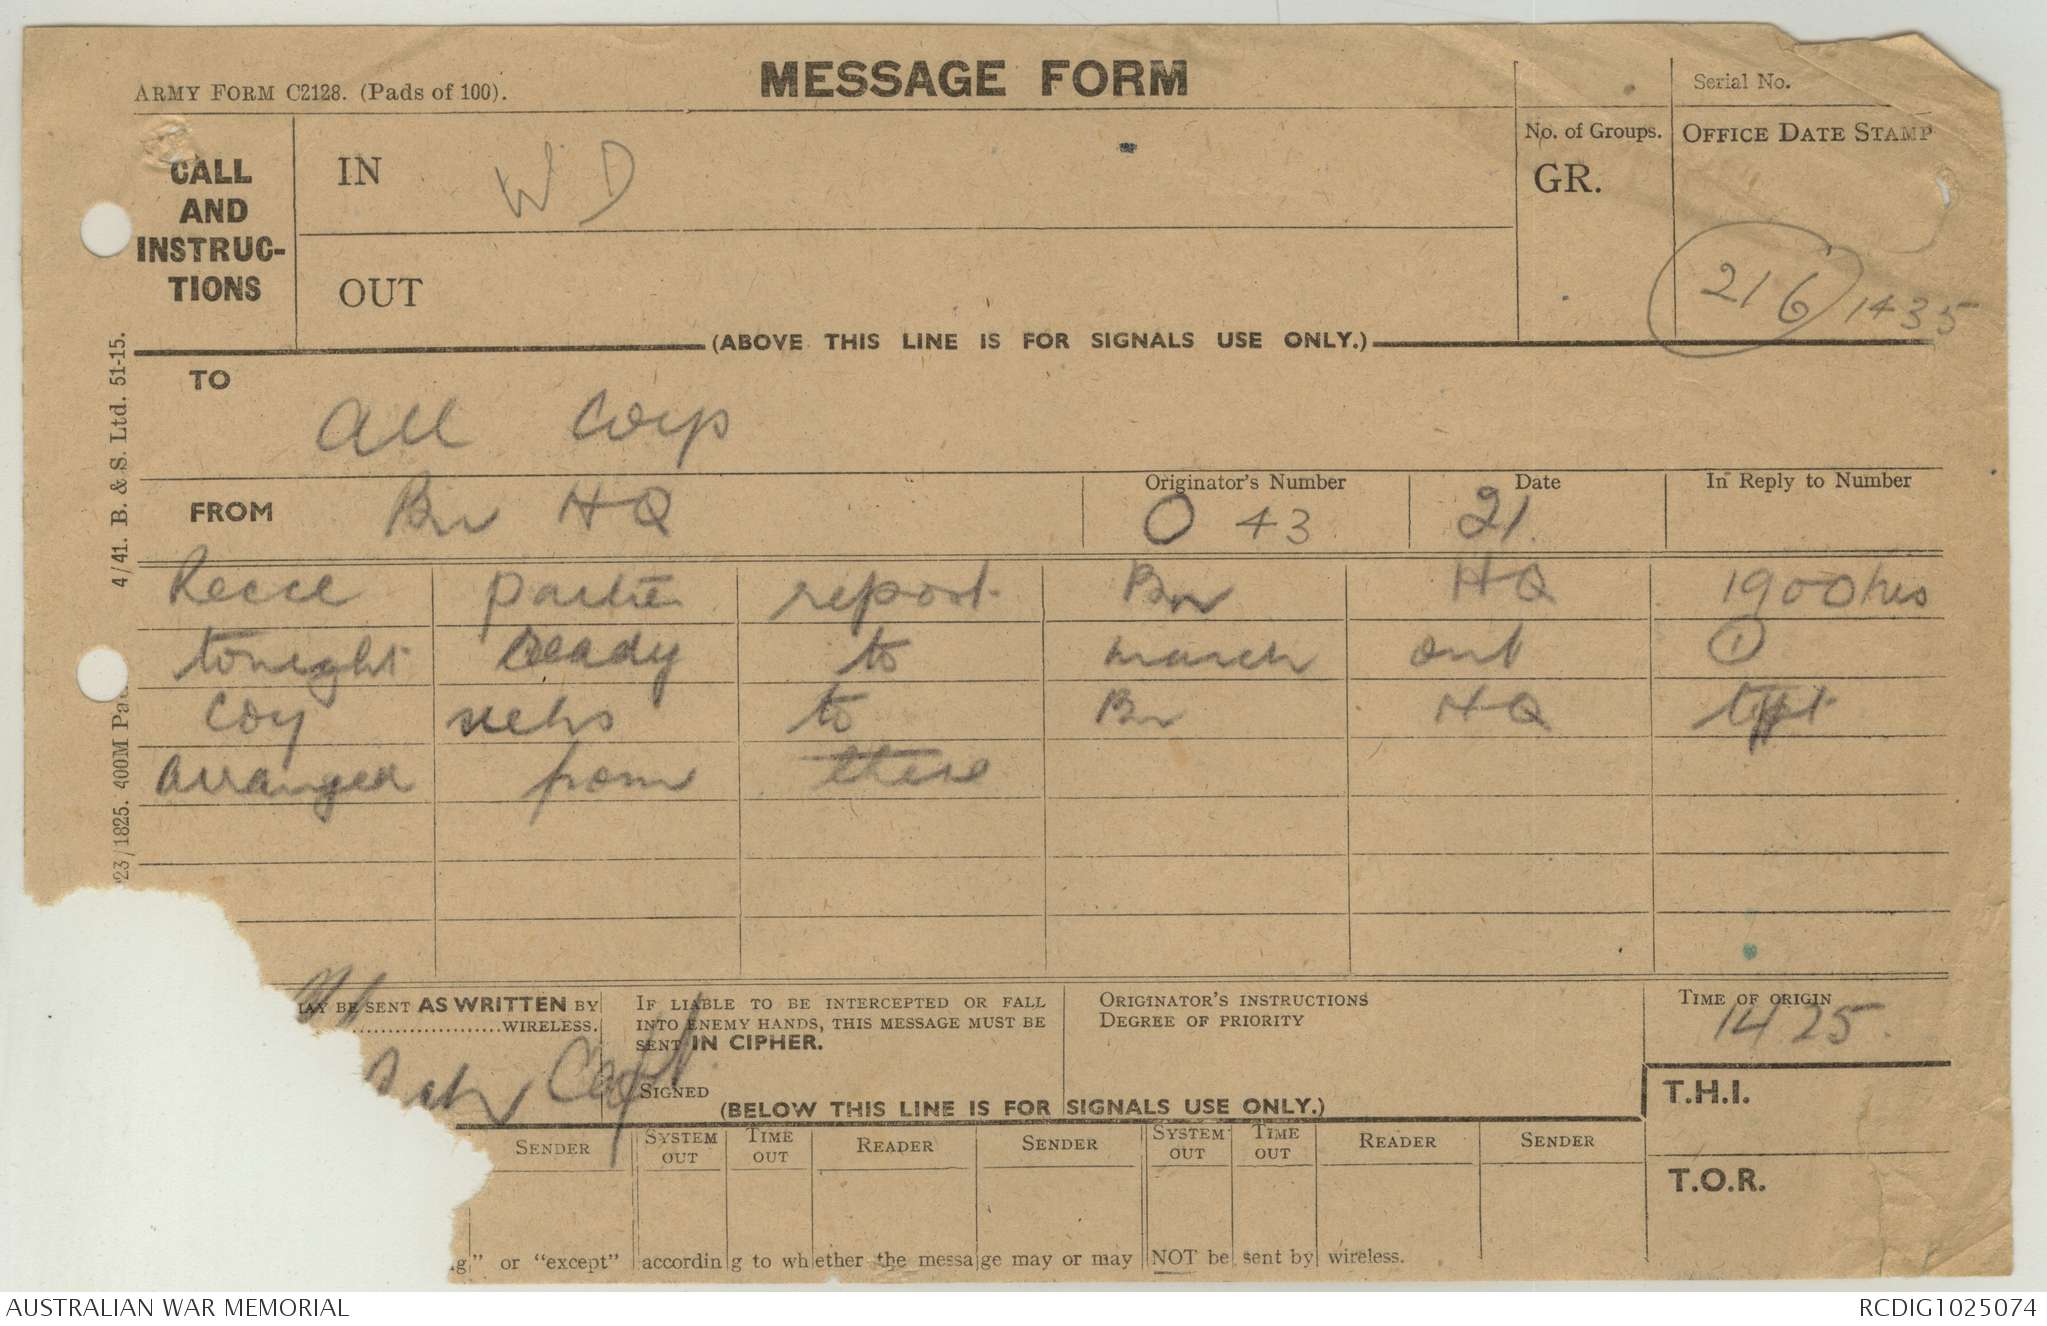 ARMY FORM C2128. (Pads of 100).
MESSAGE FORM
Serial No.
CALL AND INSTRUC-TIONS
IN W D
No. of Groups. GR.
OFFICE DATE STAMP
OUT
216 1435
(ABOVE THIS LINE IS FOR SIGNALS USE ONLY.)
TO
All Coys
FROM Bn HQ
Originator's Number O 43
Date 21.
In Reply to Number
Recce parties report Bn HQ 1900hrs
tonight ready to march out ①
Coy vehs to Bn HQ tpt
arranged from there
4/41. B. & S. Ltd. 51-15.
23/1825. 400M Pa
AY BE SENT AS WRITTEN BY
WIRELESS.
IF LIABLE TO BE INTERCEPTED OR FALL
INTO ENEMY HANDS, THIS MESSAGE MUST BE
SENT IN CIPHER.
ORIGINATOR'S INSTRUCTIONS
DEGREE OF PRIORITY
TIME OF ORIGIN
1425.
Capt.
SIGNED
T.H.I.
(BELOW THIS LINE IS FOR SIGNALS USE ONLY.)
SENDER SYSTEM OUT TIME OUT READER SENDER SYSTEM OUT TIME OUT READER SENDER
T.O.R.
g" or "except" according to whether the message may or may NOT be sent by wireless.
AUSTRALIAN WAR MEMORIAL
RCDIG1025074